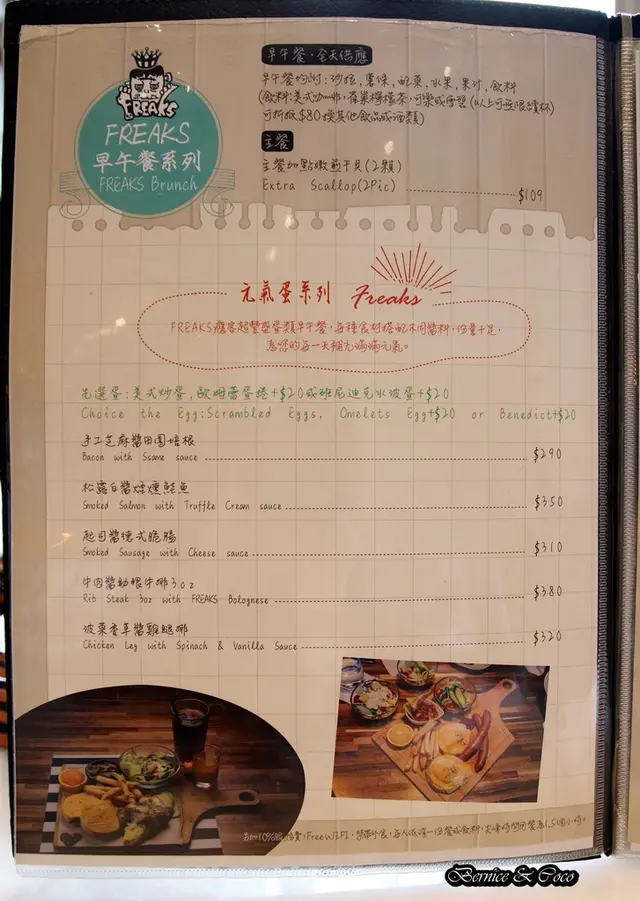 FREAKS
FREAKS
早午餐系列
FREAKS Brunch
早午餐・全天供應
早午餐均附:沙拉,薯條,配菜,水果,果汁,飲料
可折抵$80換其他飲品或酒類)
主餐
主餐加點嫩煎干貝(2顆)
Extra Scallop(2Pic) $109
元氣蛋系列 Freaks
FREAKS癮客超豐盛蛋類早午餐,每種食材搭配不同醬料,份量十足,
為您的每一天補充滿滿元氣。
先選蛋:美式炒蛋,歐姆蕾蛋捲+$20或班尼迪克水波蛋+$20
Choice the Egg:Scrambled Eggs, Omelets Egg+$20 or Benedict+$20
手工芝麻醬田園培根
Bacon with Ssame sauce $290
松露白醬煙燻鮭魚
Smoked Salmon with Truffle Cream sauce $350
起司醬德式脆腸
Smoked Sausage with Cheese sauce $310
牛肉醬肋眼牛排3oz
Rib Steak 3oz with FREAKS Bolognese $380
菠菜香草醬雞腿排
Chicken Leg with Spinach & Vanilla Sauce $320
另加10%服務費,Free WIFI,禁帶外食,每人低消一份餐或飲料,尖峰時間用餐為1.5個小時。
Bernice & Coco